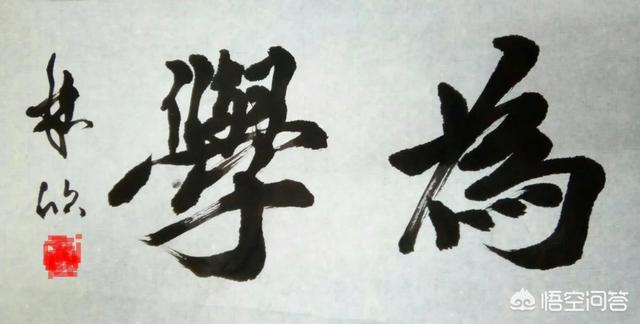 為學
林欣
悟空问答